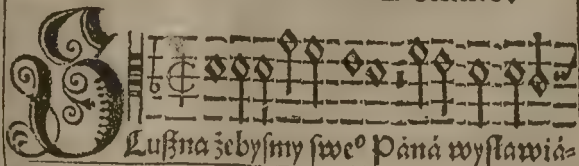 SLußna żebysmy swe⁰ Páná wysławiá⸗